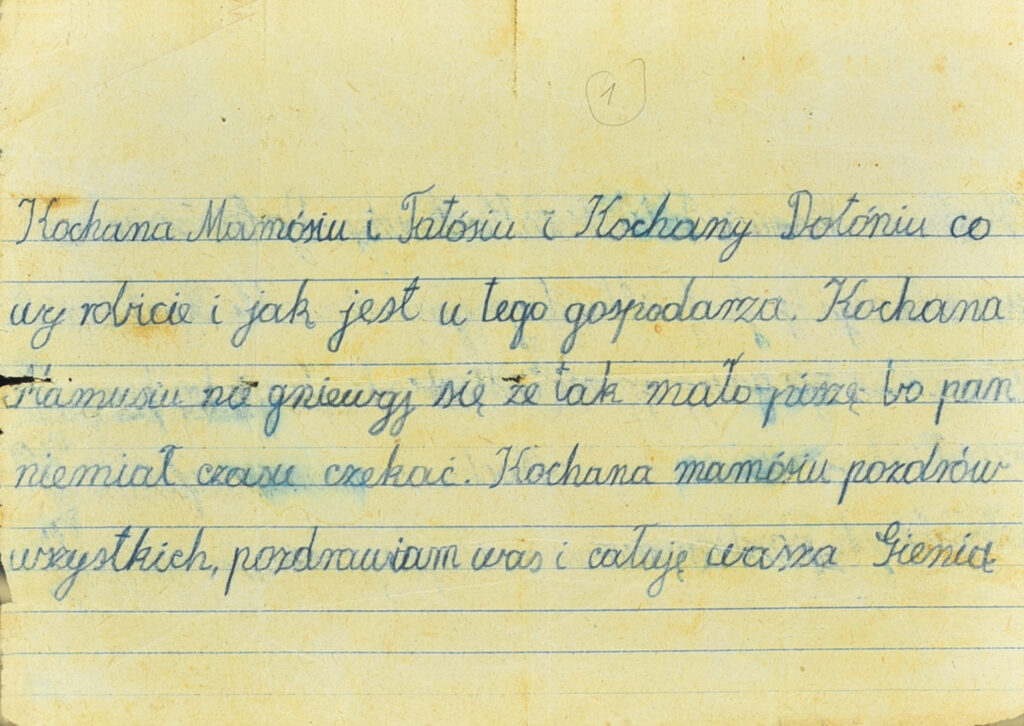 1
Kochana Mamósiu i Tatósiu i Kochany Dołóniu co
wy robicie i jak jest u tego gospodarza. Kochana
Mamusiu nie gniewaj się że tak mało piszę bo pan
niemiał czasu czekać. Kochana mamósiu pozdrów
wszystkich, pozdrawiam was i całuję wasza Gienia